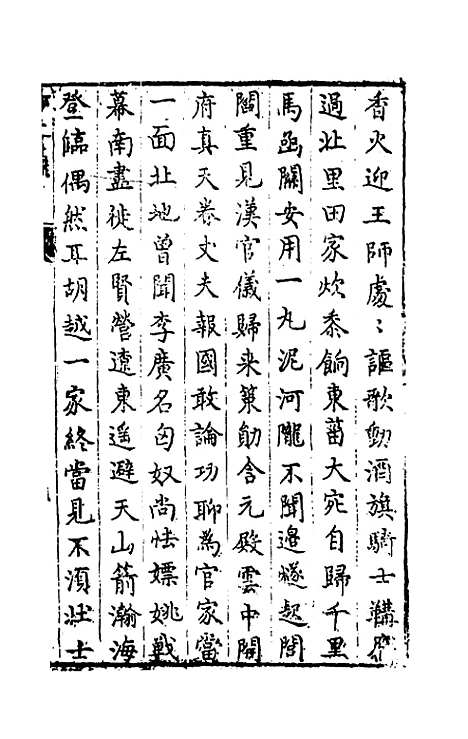 香火迎王師處〻謳歌動酒旗驕士鞲鷹
過北里田家炊黍餉東菑大宛自歸千里
馬函關安用一丸泥河隴不聞邊燧起閭
閻重見漢官儀歸来策勛含元殿雲中開
府真天卷丈夫報國敢論功聊爲官家當
一面北地曾聞李廣名匈奴尚怯嫖姚戰
幕南盡徙左賢營遼東遥避天山箭瀚海
登臨偶然耳胡越一家終當見不湏壮士